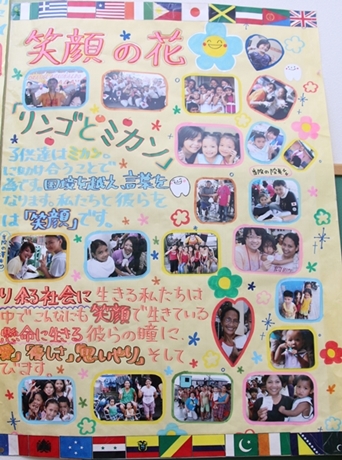 笑顔の花
「リンゴとミカン」
子供達はミカン。
に助け合う
為です。国境を越え、言葉を
なります。私たちと彼らを
は「笑顔」です。
り余る社会に生きる私たちは
中でこんなにも笑顔で生きている
懸命に生きる彼らの瞳に、
愛」優しさ、思いやり。そして
います。